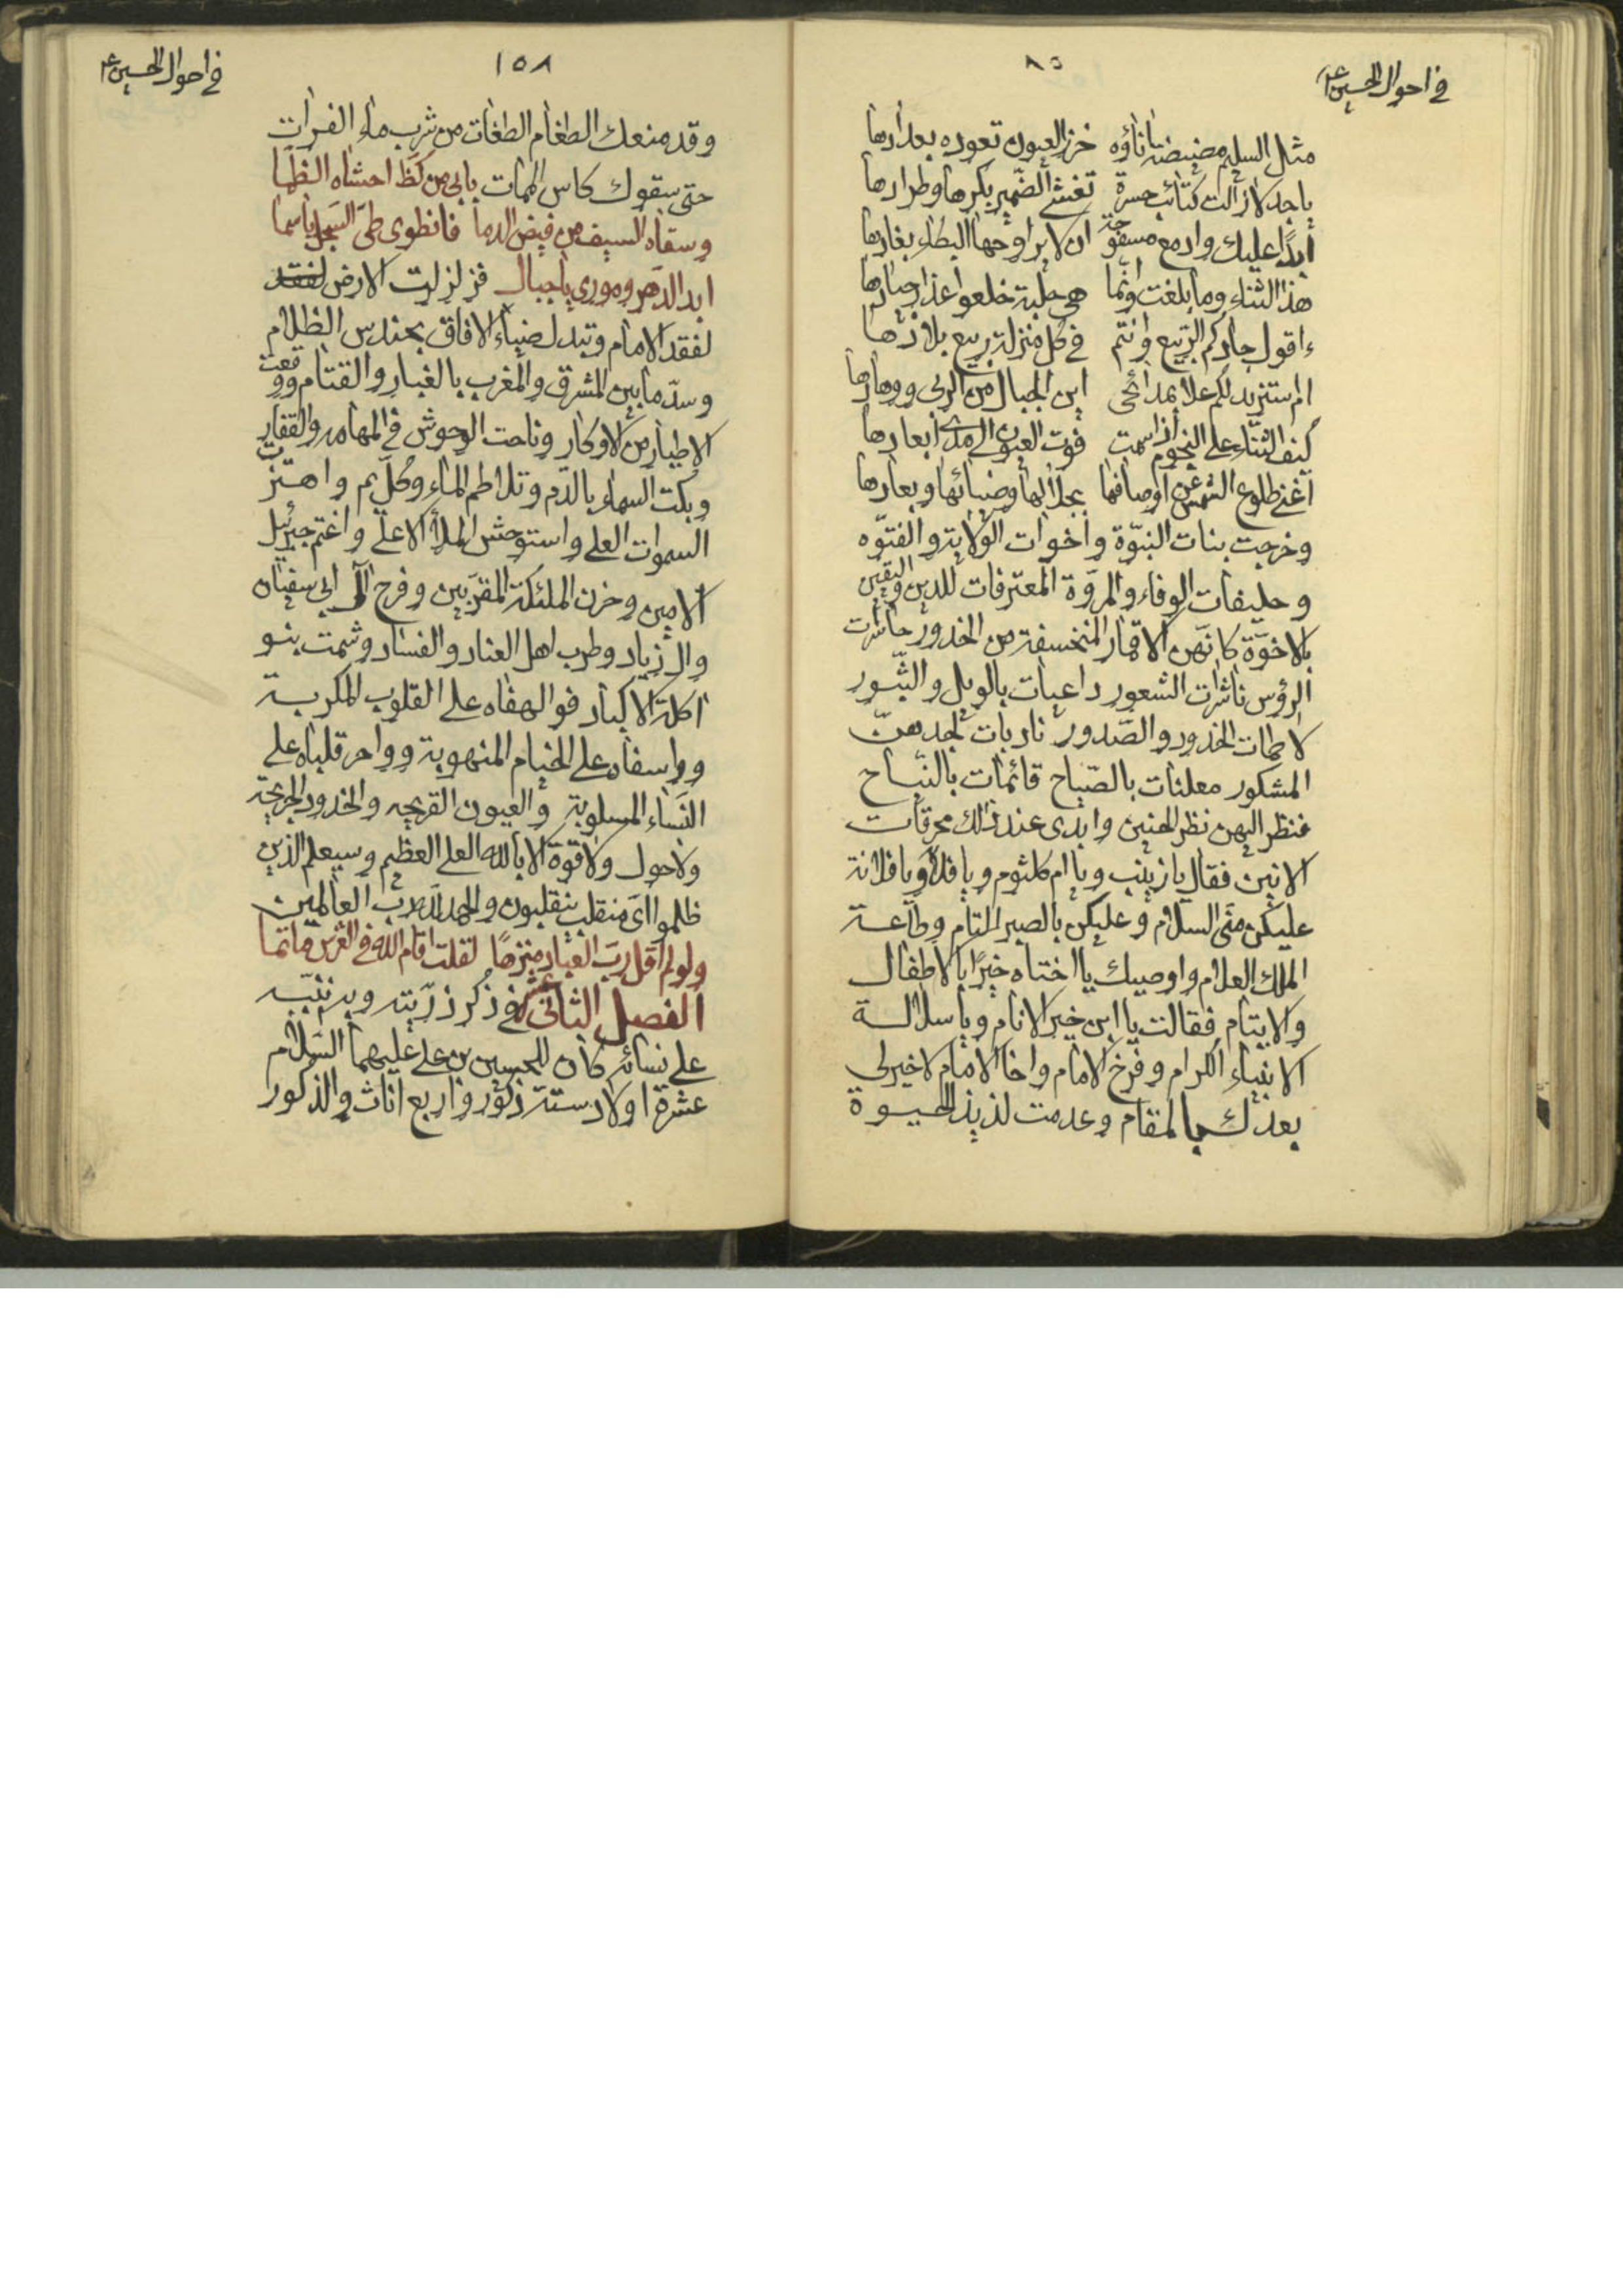 في احوال الحسين ع
٨٥
مثل السليم مضيضة اناؤه خزر العيون تعوده بعدادها
يا جد لا زالت كتائب حسرة تغشى الضمير بكرها وطرادها
ابدًا عليك وادمع مسفوحة ان لا يراوحها البكاء يغادها
هذا الثناء وما بلغت وانما هي حلبة خلعوا عذار جيادها
ءاقول جادكم الربيع وانتم في كل منزلة ربيع بلادها
ام استزيد لكم علا بمدائحي اين الجبال من الربى ووهادها
كيف الثناء على النجوم اذا سمت فوق العيون الى مدى ابعادها
اغنى طلوع الشمس عن اوصافها بجلالها وضيائها وبعادها
وخرجت بنات النبوّة واخوات الولاية والفتوّه
وحليفات الوفاء والمروّة المعترفات للدين واليقين
بالاخوّة كانهن الاقمار المنخسفة من الخدور حاسرات
الرؤس ناشرات الشعور داعيات بالويل والثبور
لاطمات الخدور والصدور نادبات لجدهنّ
المشكور معلنات بالصياح قائمات بالنياح
فنظر اليهن نظر الحنين وابدى عند ذلك محرقات
الانين فقال يا زينب ويا ام كلثوم ويا فلانة ويا فلانة
عليكن منى السلام وعليكن بالصبر التام وطاعة
الملك العلام واوصيك يا اختاه خيرًا بالاطفال
والايتام فقالت يا ابن خير الانام ويا سلالة
الانبياء الكرام وفرخ الامام واخا الامام لا خير لى
بعدك بالمقام وعدمت لذيذ الحيوة
في احوال الحسين ع
١٥٨
وقد منعك الطغام الطغات من شرب ماء الفرات
حتى سقوك كاس الممات بابي من كظ احشاه الظما
وسقاه السيف من فيض الدما فانطوى طي السجل يا سما
ابد الدهر وموري يا جبال فزلزلت الارض لفقد
لفقد الامام وتبدل ضياء الافاق بحندس الظلام
وسدّ ما بين المشرق والمغرب بالغبار والقتام ووقعت
الاطيار من الاوكار وناحت الوحوش في المهامه والقفار
وبكت السماء بالدم وتلاطم الماء وكل يم واهتزت
السموات العلى واستوحش الملأ الاعلى واغتم جبرئيل
الامين وحزن الملئكة المقربين وفرح آل ابى سفيان
وال زياد وطرب اهل العناد والفساد وشمت بنو
اكلة الاكباد فوالهفاه على القلوب المكربة
وواسفاه على الخيام المنهوبة وواحر قلباه على
النساء المسلوبة والعيون القريحه والخدود الجريحة
ولا حول ولا قوة الا بالله العلى العظيم وسيعلم الذين
ظلموا اى منقلب ينقلبون والحمد لله رب العالمين
ولو لم اقل رب العباد منزهًا لقلت اقام الله في العرش ماتما
الفصل الثاني عشر في ذكر ذريته وبه نثنّيه
على نسائه كان للحسين بن على عليهما السلام
عشرة اولاد ستة ذكور واربع اناث والذكور